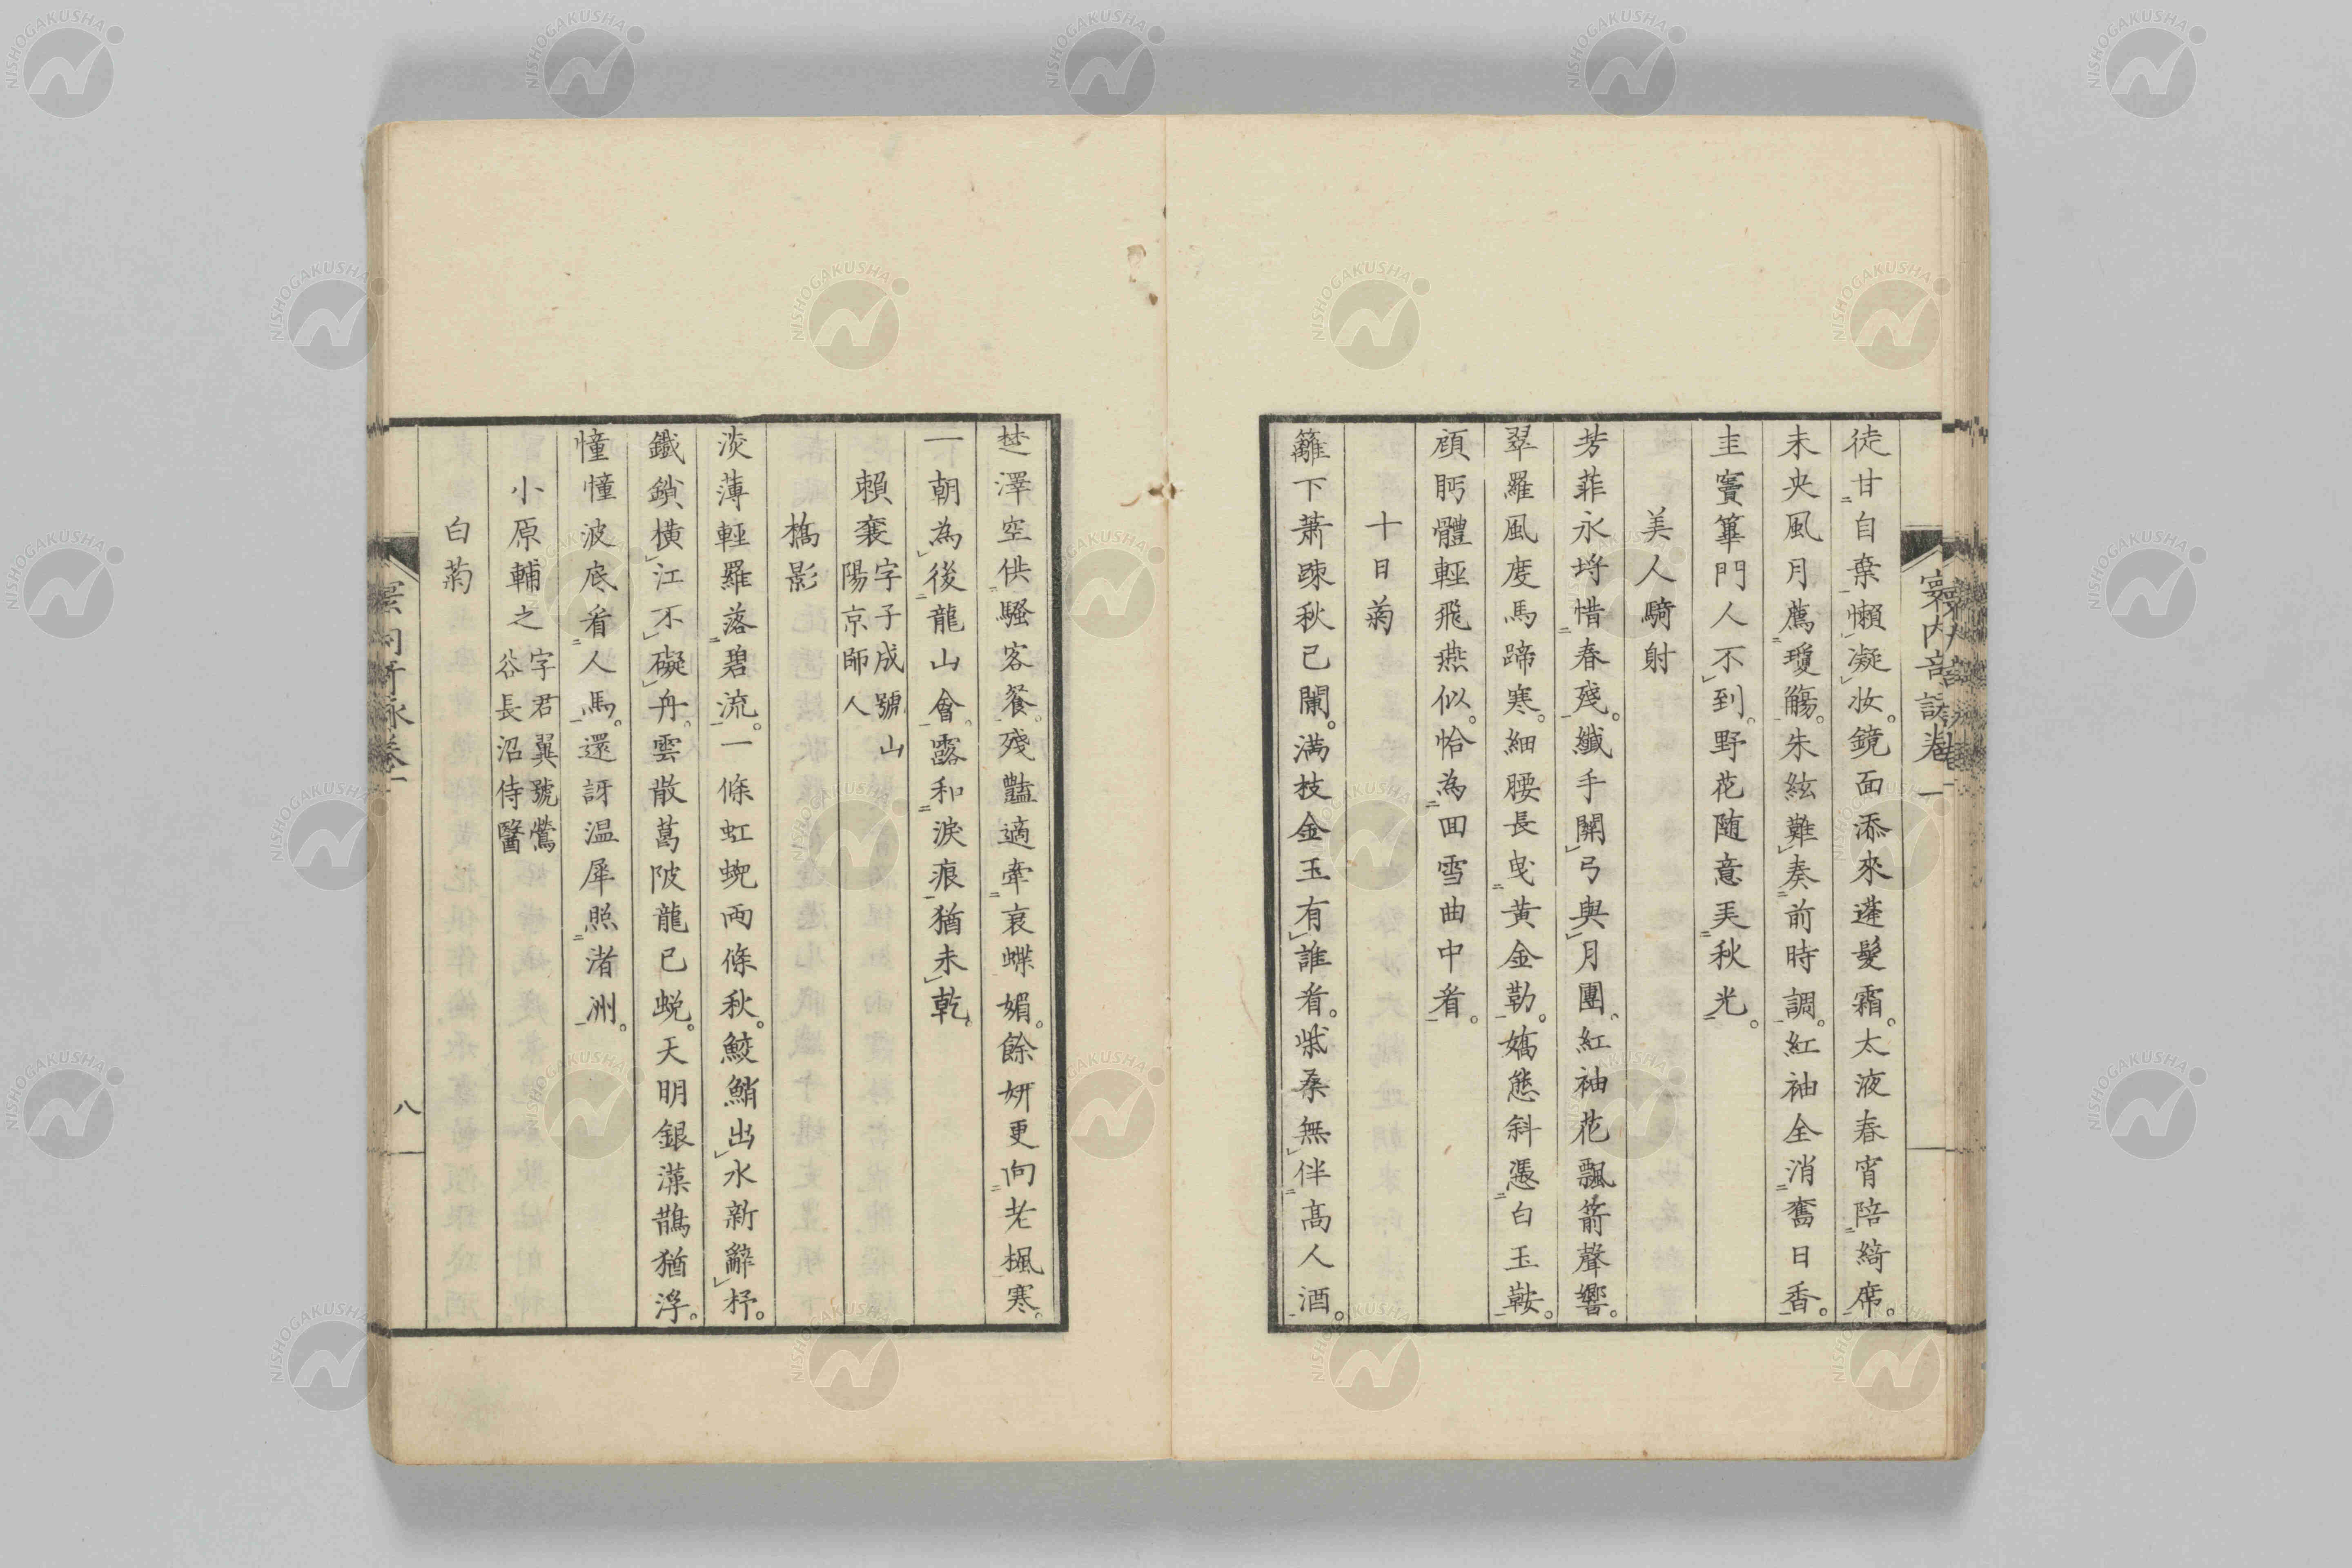 徒甘自棄懶凝妝。鏡面添來蓬髮霜。太液春宵陪綺席。
未央風月薦瓊觴。朱絃難奏前時調。紅袖全消舊日香。
圭竇篳門人不到。野花随意美秋光。
美人騎射
芳菲永埒惜春殘。纖手開弓與月團。紅袖花飄箭聲響。
翠羅風度馬蹄寒。細腰長曳黄金勒。嬌態斜憑白玉鞍。
頋眄體輕飛燕似。恰為回雪曲中看。
十日菊
籬下蕭踈秋已闌。滿枝金玉有誰看。柴桑無伴高人酒。
楚澤空供騷客餐。殘豔適牽哀蝶媚。餘妍更向老楓寒。
一朝為後龍山會。露和淚痕猶未乾。
賴襄 字子成號山
陽京師人
橋影
淡薄輕羅落碧流。一條虹蜺兩條秋。鮫鮹出水新辭杼。
鐵鎖横江不礙舟。雲散葛陂龍已蛻。天明銀漢鵲猶浮。
憧憧波底看人馬。還訝温犀照渚洲。
小原輔之 字君翼號鶯
谷長沼侍醫
白菊
八
NISHOGAKUSHA